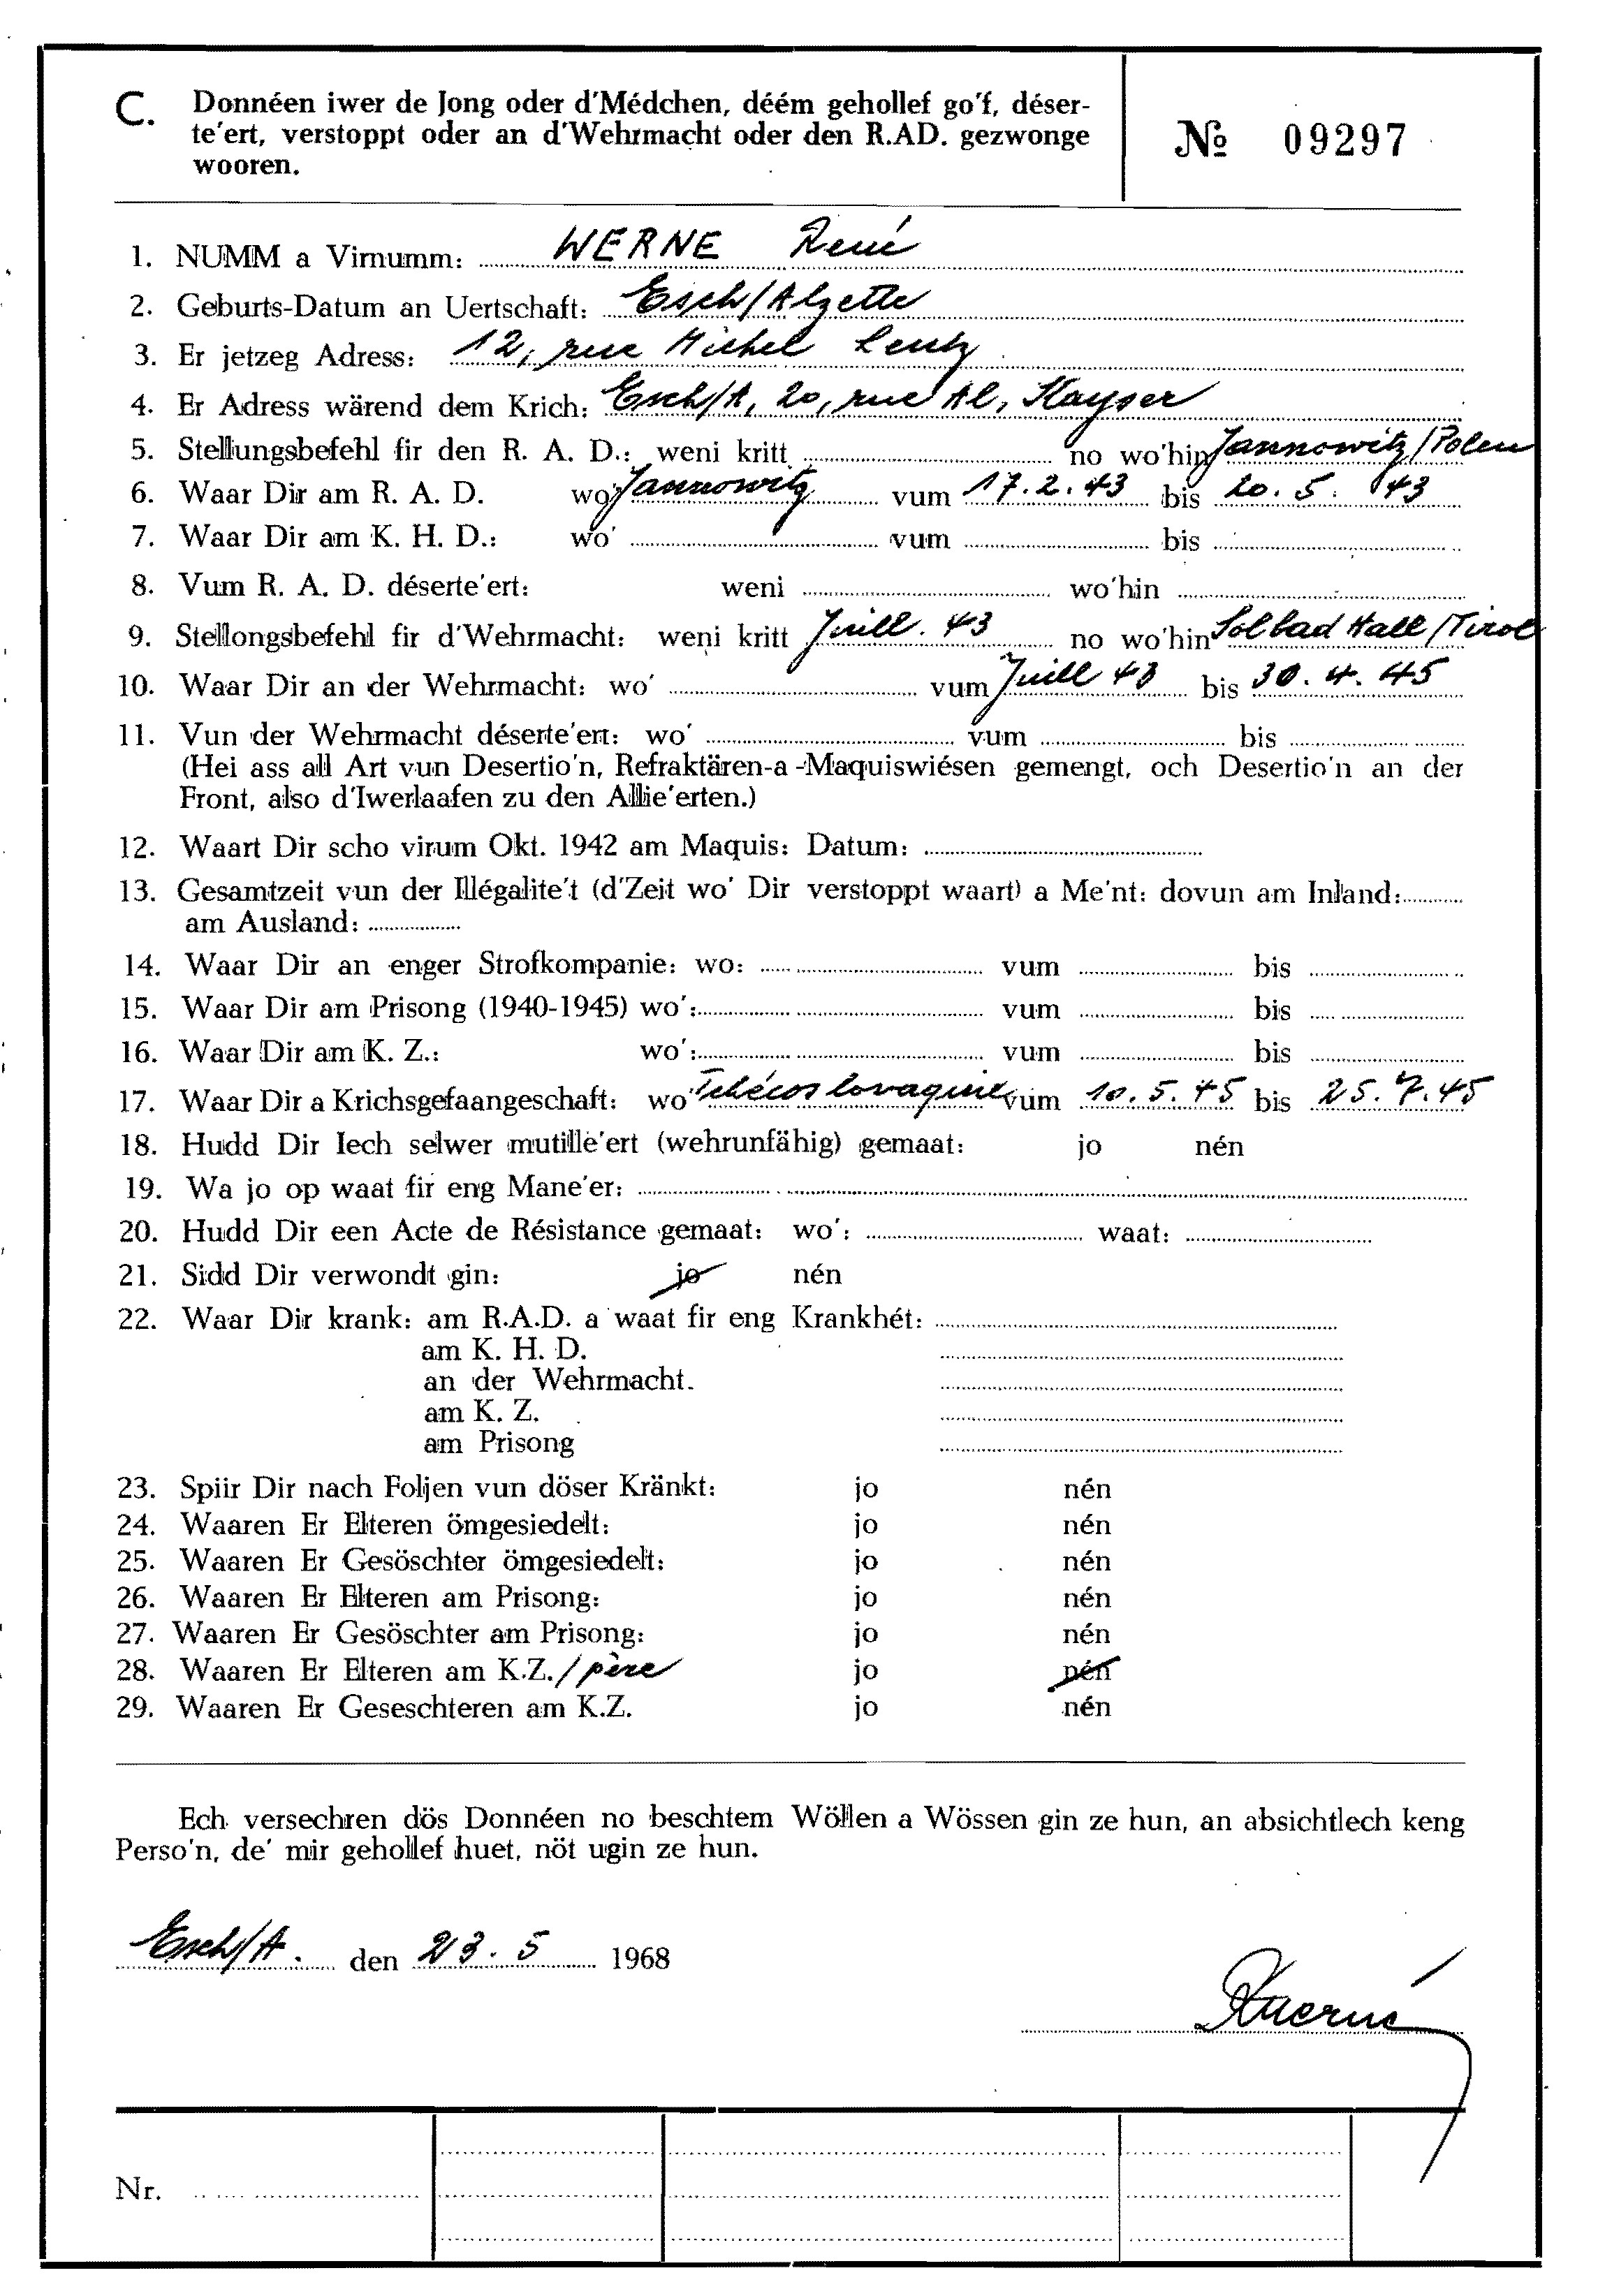 C. Donnéen iwer de Jong oder d'Médchen, déém gehollef go'f, déser-
te'ert, verstoppt oder an d'Wehrmacht oder den R.AD. gezwonge
wooren.
№ 09297
1. NUMM a Virnumm: WERNE René
2. Geburts-Datum an Uertschaft: Esch/Alzette
3. Er jetzeg Adress: 12, rue Michel Lentz
4. Er Adress wärend dem Krich: Esch/A, 20, rue Al. Kayser
5. Stellungsbefehl fir den R. A. D.: weni kritt no wo'hin Jannowitz/Polen
6. Waar Dir am R. A. D. wo' Jannowitz vum 17.2.43 bis 20.5.43
7. Waar Dir am K. H. D.: wo' vum bis
8. Vum R. A. D. déserte'ert: weni wo'hin
9. Stellongsbefehl fir d'Wehrmacht: weni kritt Juill. 43 no wo'hin Solbad Hall/Tirol
10. Waar Dir an der Wehrmacht: wo' vum Juill 43 bis 30.4.45
11. Vun der Wehrmacht déserte'ert: wo' vum bis
(Hei ass all Art vun Desertio'n, Refraktären-a-Maquiswiésen gemengt, och Desertio'n an der
Front, also d'Iwerlaafen zu den Allie'erten.)
12. Waart Dir scho virum Okt. 1942 am Maquis: Datum:
13. Gesamtzeit vun der Illégalite't (d'Zeit wo' Dir verstoppt waart) a Me'nt: dovun am Inland:
am Ausland:
14. Waar Dir an enger Strofkompanie: wo: vum bis
15. Waar Dir am Prisong (1940-1945) wo': vum bis
16. Waar Dir am K. Z.: wo': vum bis
17. Waar Dir a Krichsgefaangeschaft: wo' Tchécoslovaquie vum 10.5.45 bis 25.7.45
18. Hudd Dir Iech selwer mutille'ert (wehrunfähig) gemaat: jo nén
19. Wa jo op waat fir eng Mane'er:
20. Hudd Dir een Acte de Résistance gemaat: wo': waat:
21. Sidd Dir verwondt gin: jo nén
22. Waar Dir krank: am R.A.D. a waat fir eng Krankhét:
am K. H. D.
an der Wehrmacht.
am K. Z.
am Prisong
23. Spiir Dir nach Foljen vun döser Kränkt: jo nén
24. Waaren Er Elteren ömgesiedelt: jo nén
25. Waaren Er Gesöschter ömgesiedelt: jo nén
26. Waaren Er Elteren am Prisong: jo nén
27. Waaren Er Gesöschter am Prisong: jo nén
28. Waaren Er Elteren am K.Z. / père jo nén
29. Waaren Er Geseschteren am K.Z. jo nén
Ech versechren dös Donnéen no beschtem Wöllen a Wössen gin ze hun, an absichtlech keng
Perso'n, de' mir gehollef huet, nöt ugin ze hun.
Esch/A. den 23.5 1968
Nr.